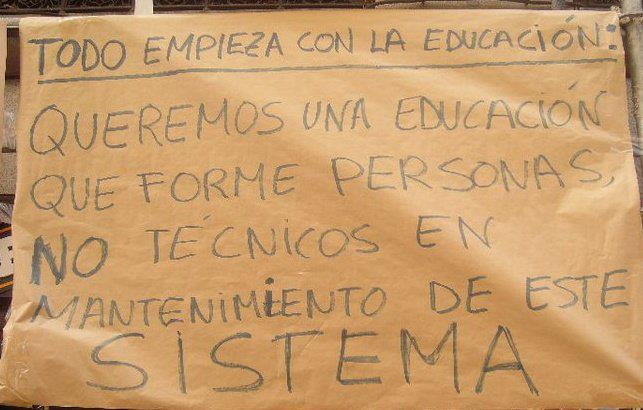 TODO EMPIEZA CON LA EDUCACIÓN:
QUEREMOS UNA EDUCACIÓN
QUE FORME PERSONAS,
NO TÉCNICOS EN
MANTENIMIENTO DE ESTE
SISTEMA